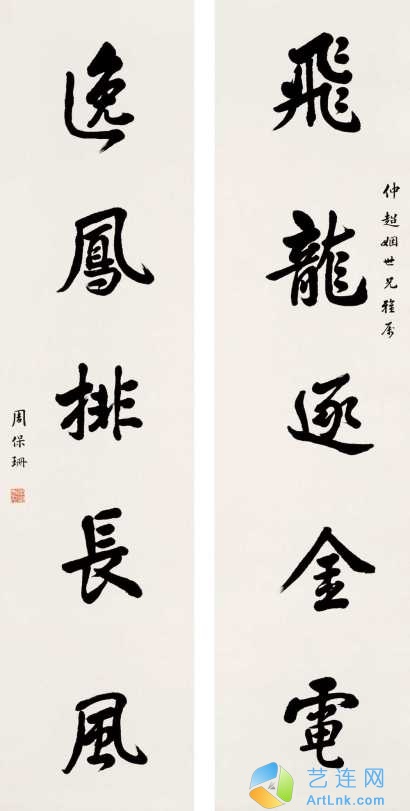 飛龍逐金電
仲超姻世兄雅屬
逸鳳排長風
周保珊
艺连网
ArtLnk.com